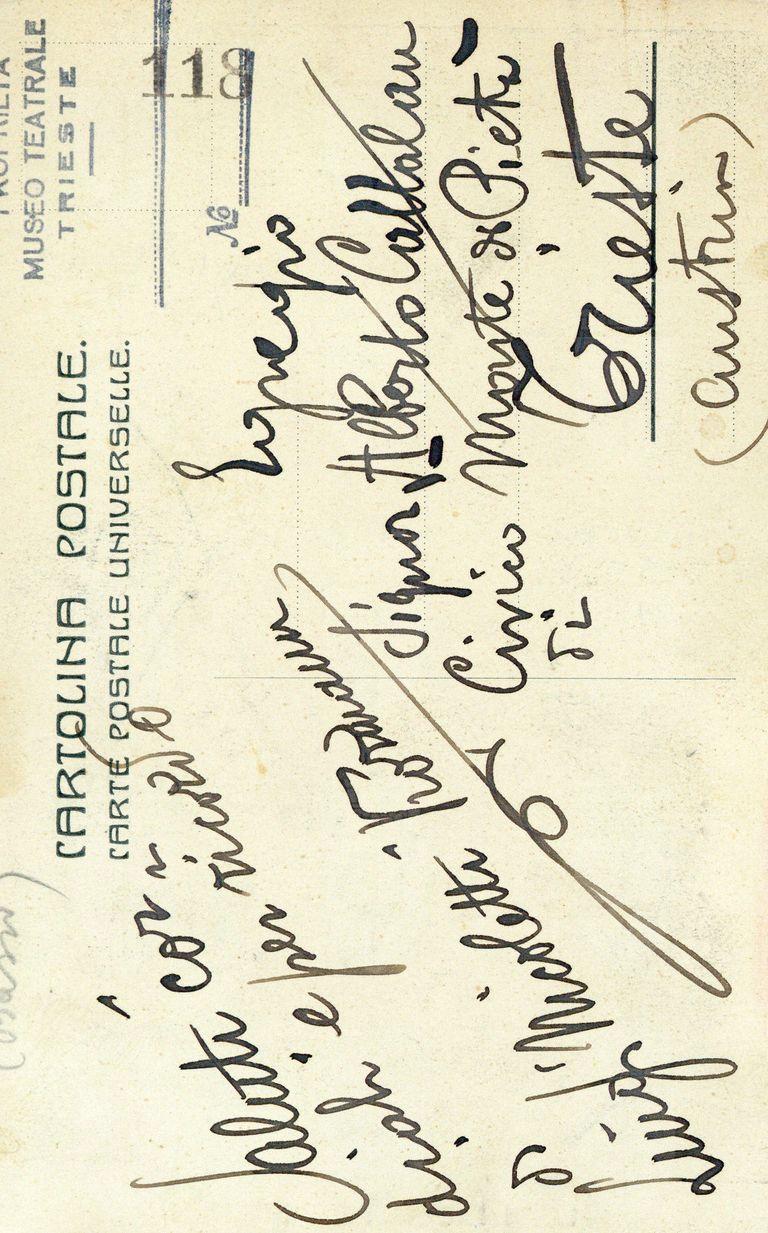 PROPRIETÀ
MUSEO TEATRALE
TRIESTE
118
No
CARTOLINA POSTALE.
CARTE POSTALE UNIVERSELLE.
Saluti cor-
diali e per ricordo
di Nicoletti
Luigi
Egregio
Signor Alberto Cattalan
Civico Monte di Pietà
di Trieste
(Austria)